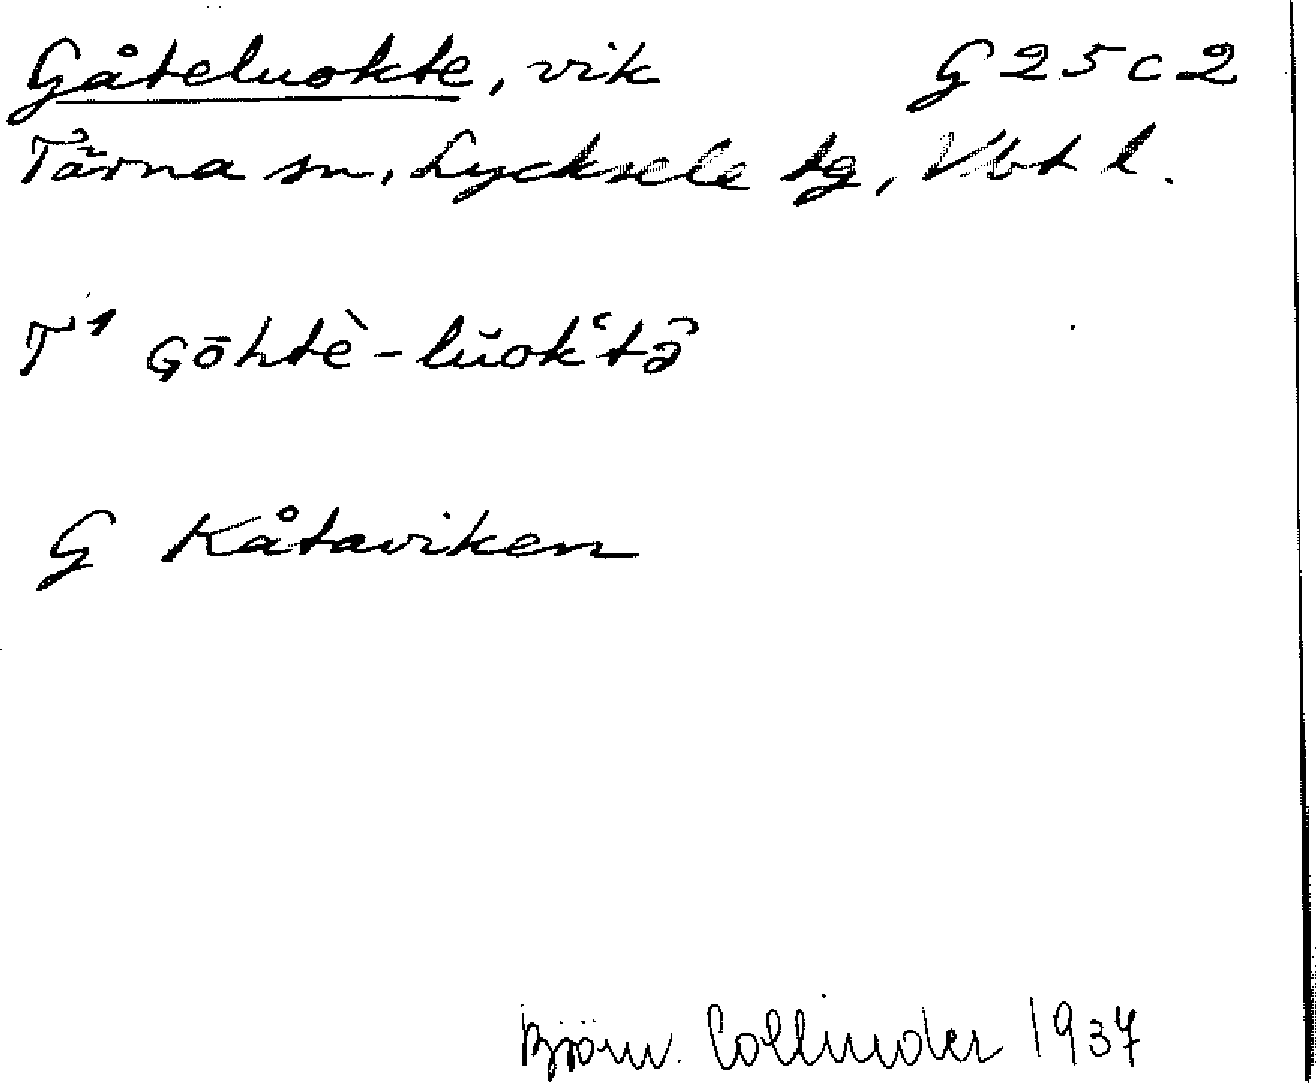 Gåteluokte, vik G 25 c 2
Tärna sn, Lycksele lg, Vbt l.
T¹ Gōhtè-lŭokʿtə̑
G Kåtaviken
Björn Collinder 1937